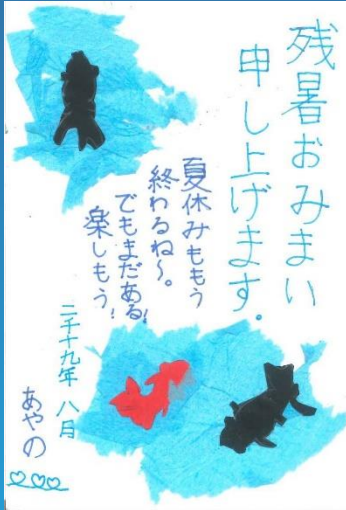 残暑おみまい
申し上げます。
夏休みももう
終わるね~。
でもまだある!
楽しもう!
二千十九年 八月
あやの